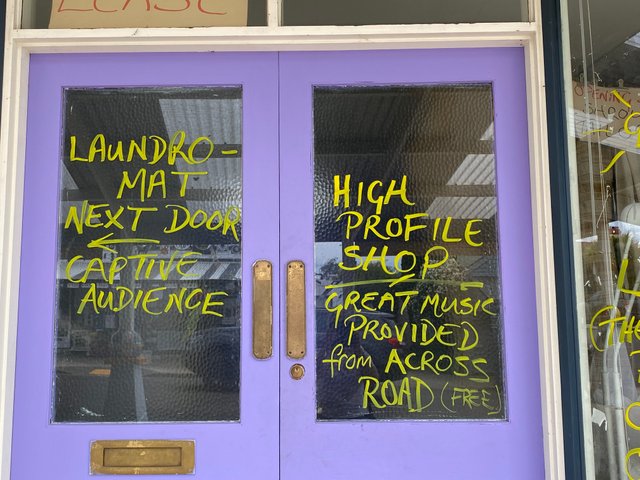 LEASE
LAUNDRO-
MAT
NEXT DOOR
CAPTIVE
AUDIENCE
HIGH
PROFILE
SHOP
GREAT MUSIC
PROVIDED
from ACROSS
ROAD (FREE)
OPENING
(THE